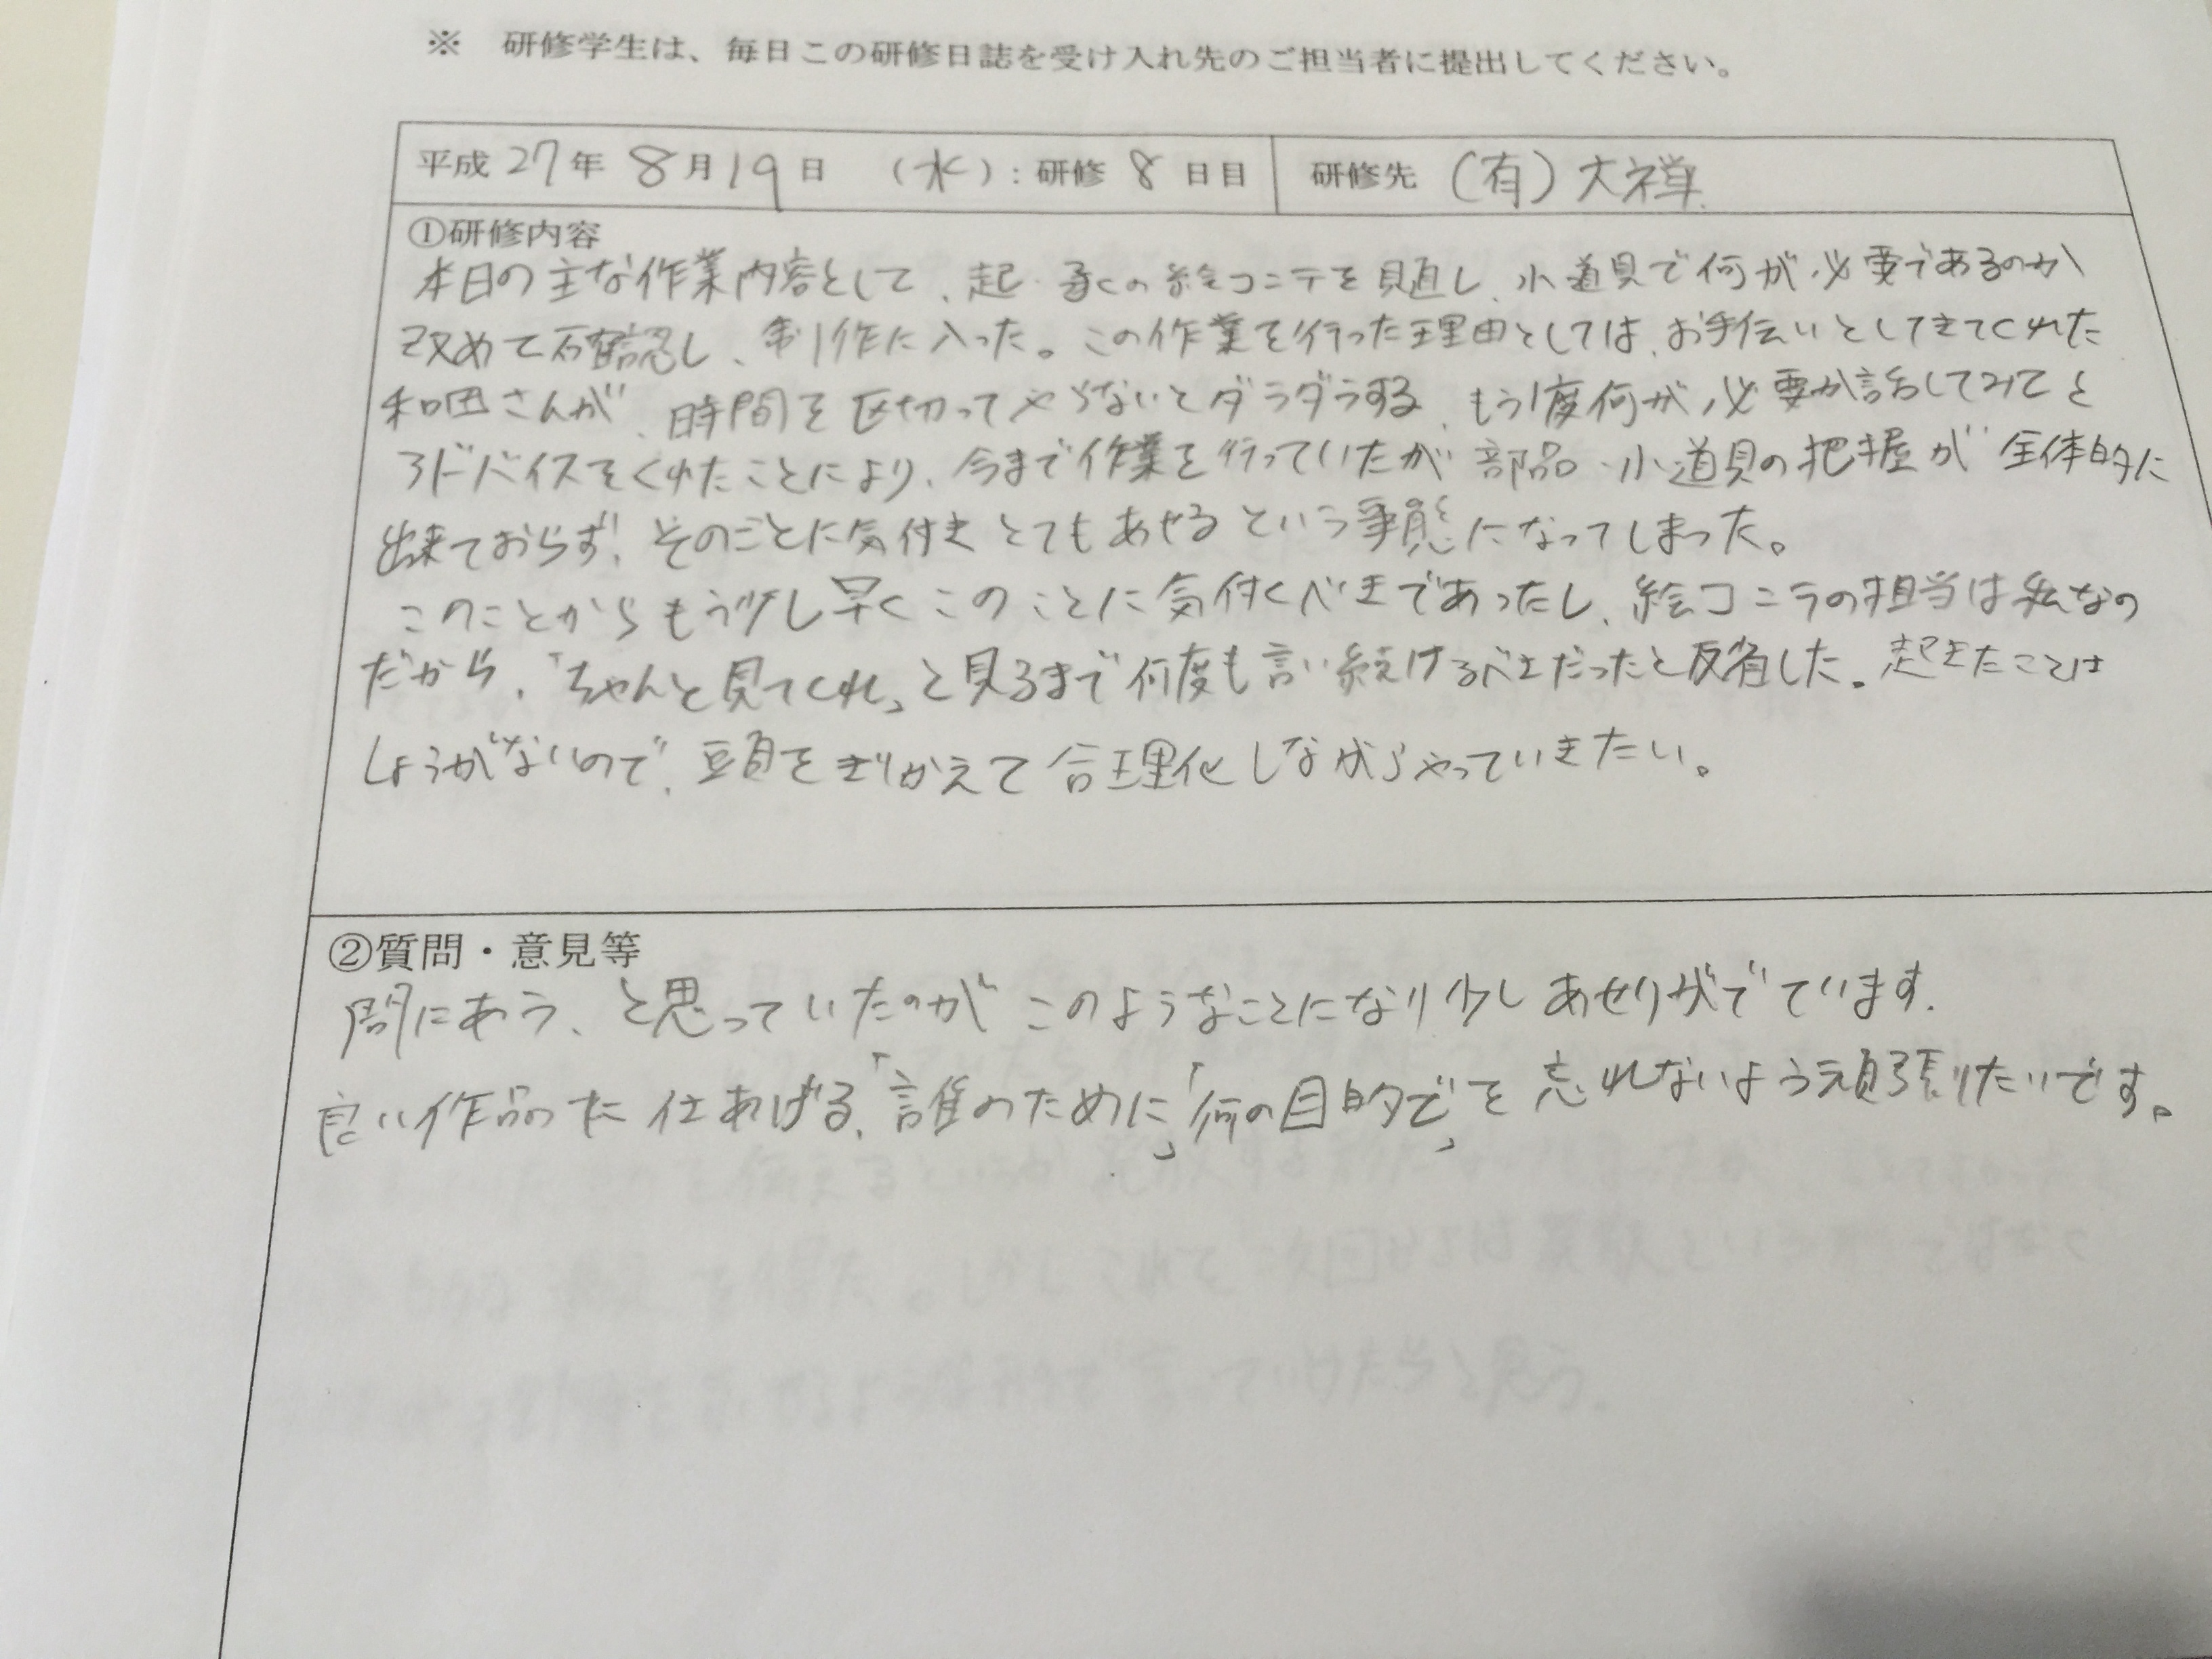 ※　研修学生は、毎日この研修日誌を受け入れ先のご担当者に提出してください。
平成27年8月19日　(水)：研修8日目　研修先　(有)大禅
①研修内容
本日の主な作業内容として、起・承の絵コンテを見直し、小道具で何が必要であるのか
改めて確認し、制作に入った。この作業を行った理由としては、お手伝いとしてきてくれた
和田さんが、時間を区切ってやらないとダラダラする、もう1度何が必要か話してみてと
アドバイスをくれたことにより、今まで作業を行っていたが部品・小道具の把握が全体的に
出来ておらず、そのことに気付きとてもあせるという事態になってしまった。
このことからもう少し早くこのことに気付くべきであったし、絵コンテの担当は私なの
だから、「ちゃんと見てくれ」と見るまで何度も言い続けるべきだったと反省した。起きたことは
しょうがないので、頭をきりかえて合理化しながらやっていきたい。
②質問・意見等
間にあう、と思っていたのがこのようなことになり少しあせりがでています。
良い作品のた仕あげる、「誰のために」「何の目的で」を忘れないよう頑張りたいです。